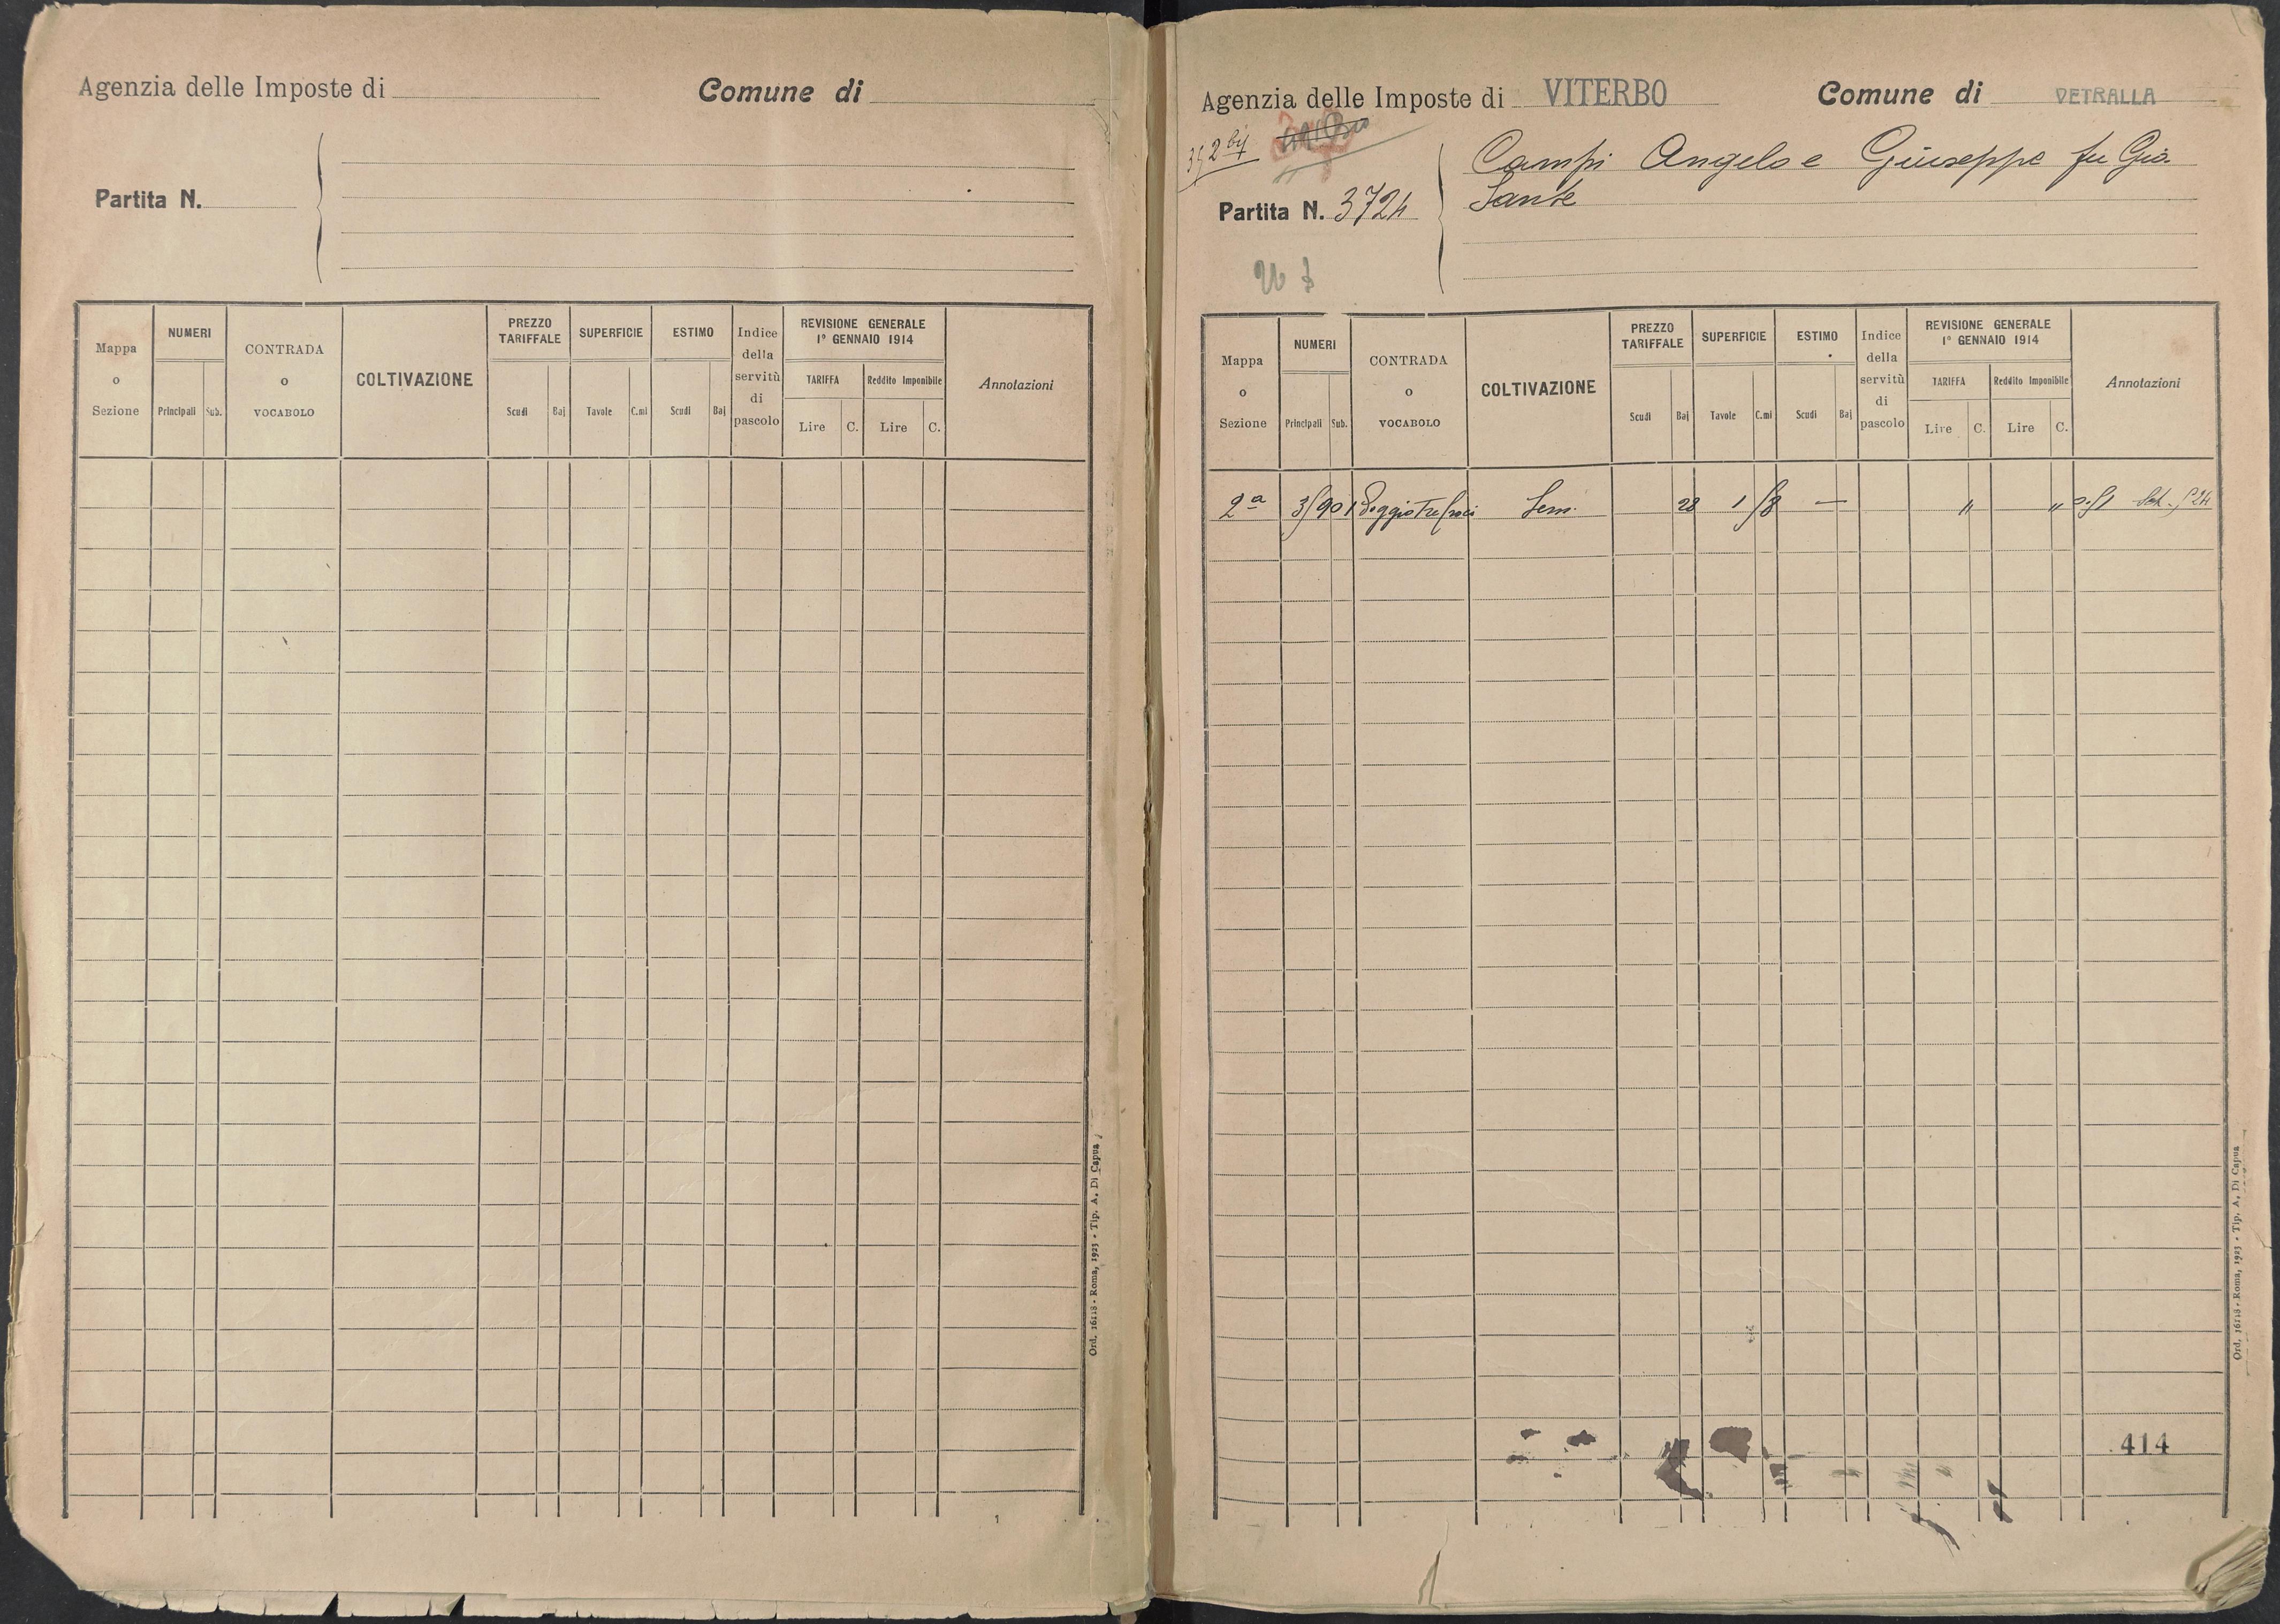 Agenzia delle Imposte di
Comune di
Partita N.
Mappa o Sezione
NUMERI
Principali
Sub.
CONTRADA o VOCABOLO
COLTIVAZIONE
PREZZO TARIFFALE
Scudi
Baj
SUPERFICIE
Tavole
C.mi
ESTIMO
Scudi
Baj
Indice della servitù di pascolo
REVISIONE GENERALE
1° GENNAIO 1914
TARIFFA
Lire
C.
Reddito Imponibile
Lire
C.
Annotazioni
Ord. 16118 - Roma, 1923 - Tip. A. Di Capua
Agenzia delle Imposte di VITERBO
Comune di VETRALLA
Partita N. 3724
Campi Angelo e Giuseppe fu Gio
Sante
Mappa o Sezione
NUMERI
Principali
Sub.
CONTRADA o VOCABOLO
COLTIVAZIONE
PREZZO TARIFFALE
Scudi
Baj
SUPERFICIE
Tavole
C.mi
ESTIMO
Scudi
Baj
Indice della servitù di pascolo
REVISIONE GENERALE
1° GENNAIO 1914
TARIFFA
Lire
C.
Reddito Imponibile
Lire
C.
Annotazioni
2ª Sem. 28 — " "
414
Ord. 16118 - Roma, 1923 - Tip. A. Di Capua